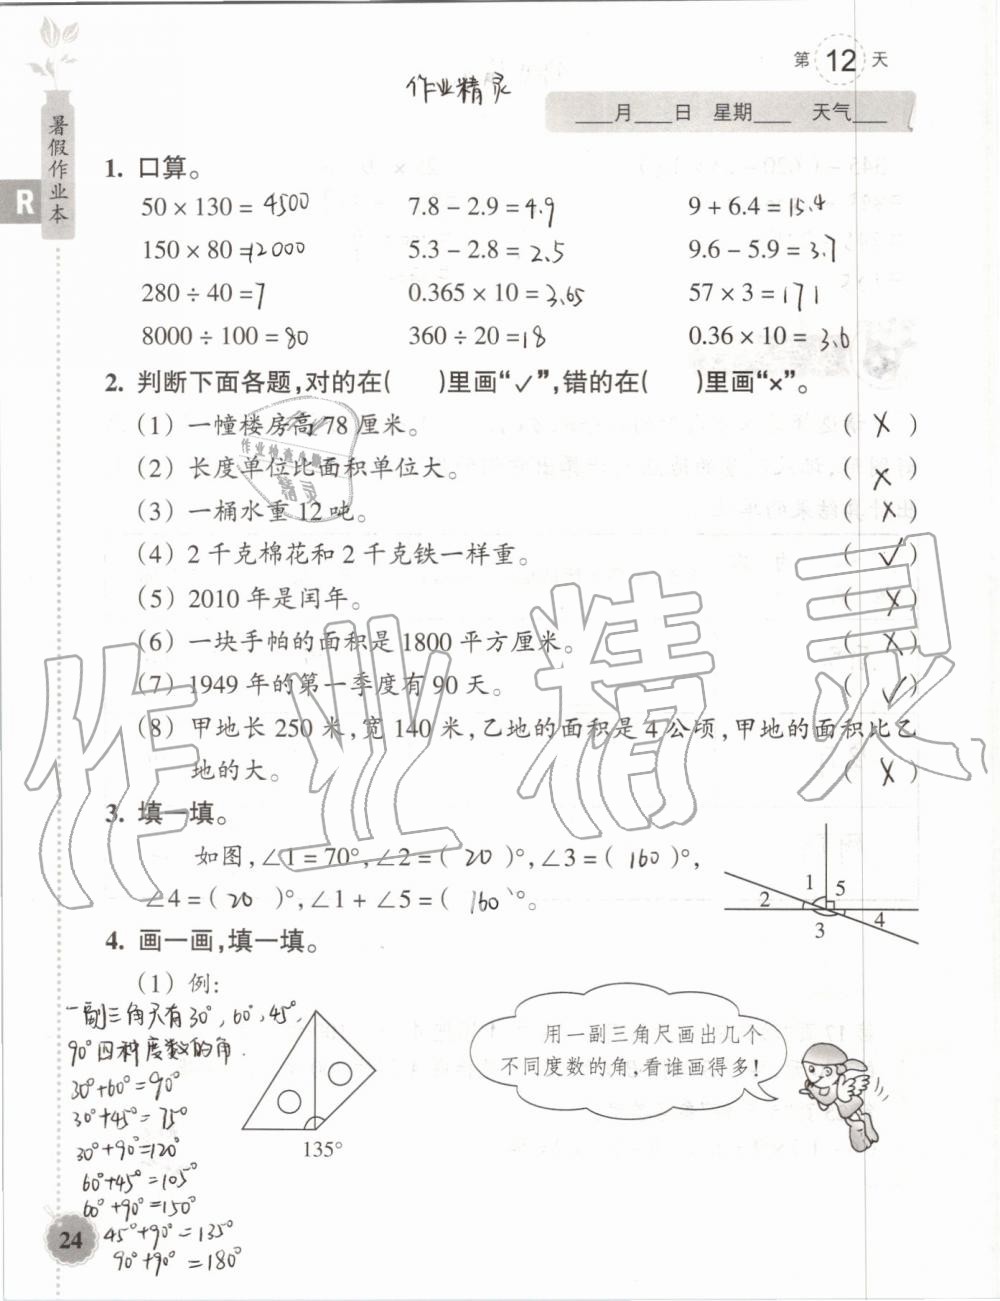 第 12 天
作业精灵
____月____日 星期____ 天气____
暑假作业本
R
1. 口算。
50 × 130 = 4500 7.8 − 2.9 = 4.9 9 + 6.4 = 15.4
150 × 80 = 12000 5.3 − 2.8 = 2.5 9.6 − 5.9 = 3.7
280 ÷ 40 = 7 0.365 × 10 = 3.65 57 × 3 = 171
8000 ÷ 100 = 80 360 ÷ 20 = 18 0.36 × 10 = 3.6
2. 判断下面各题,对的在( )里画“✓”,错的在( )里画“×”。
(1) 一幢楼房高 78 厘米。 ( X )
(2) 长度单位比面积单位大。 ( X )
(3) 一桶水重 12 吨。 ( X )
(4) 2 千克棉花和 2 千克铁一样重。 ( ✓ )
(5) 2010 年是闰年。 ( X )
(6) 一块手帕的面积是 1800 平方厘米。 ( X )
(7) 1949 年的第一季度有 90 天。 ( ✓ )
(8) 甲地长 250 米,宽 140 米,乙地的面积是 4 公顷,甲地的面积比乙
地的大。 ( X )
作业检查小助
精灵
作业精灵
3. 填一填。
如图,∠1 = 70°,∠2 = ( 20 )°,∠3 = ( 160 )°,
∠4 = ( 20 )°,∠1 + ∠5 = ( 160 )°。
1 5
2
3 4
4. 画一画,填一填。
(1) 例:
一副三角尺有30°,60°,45°,
90°四种度数的角.
30°+60°=90°
30°+45°=75°
30°+90°=120°
60°+45°=105°
60°+90°=150°
45°+90°=135°
90°+90°=180°
135°
用一副三角尺画出几个
不同度数的角,看谁画得多!
24